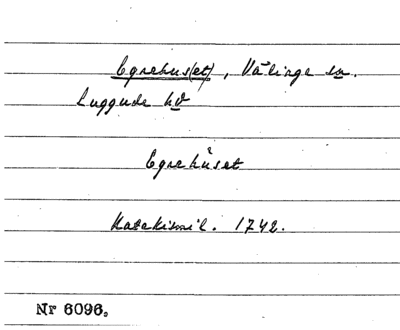 Egnehus(et), Välinge sn.
Luggude hd
Egnehuset
Katekismil. 1742.
Nr 6096.